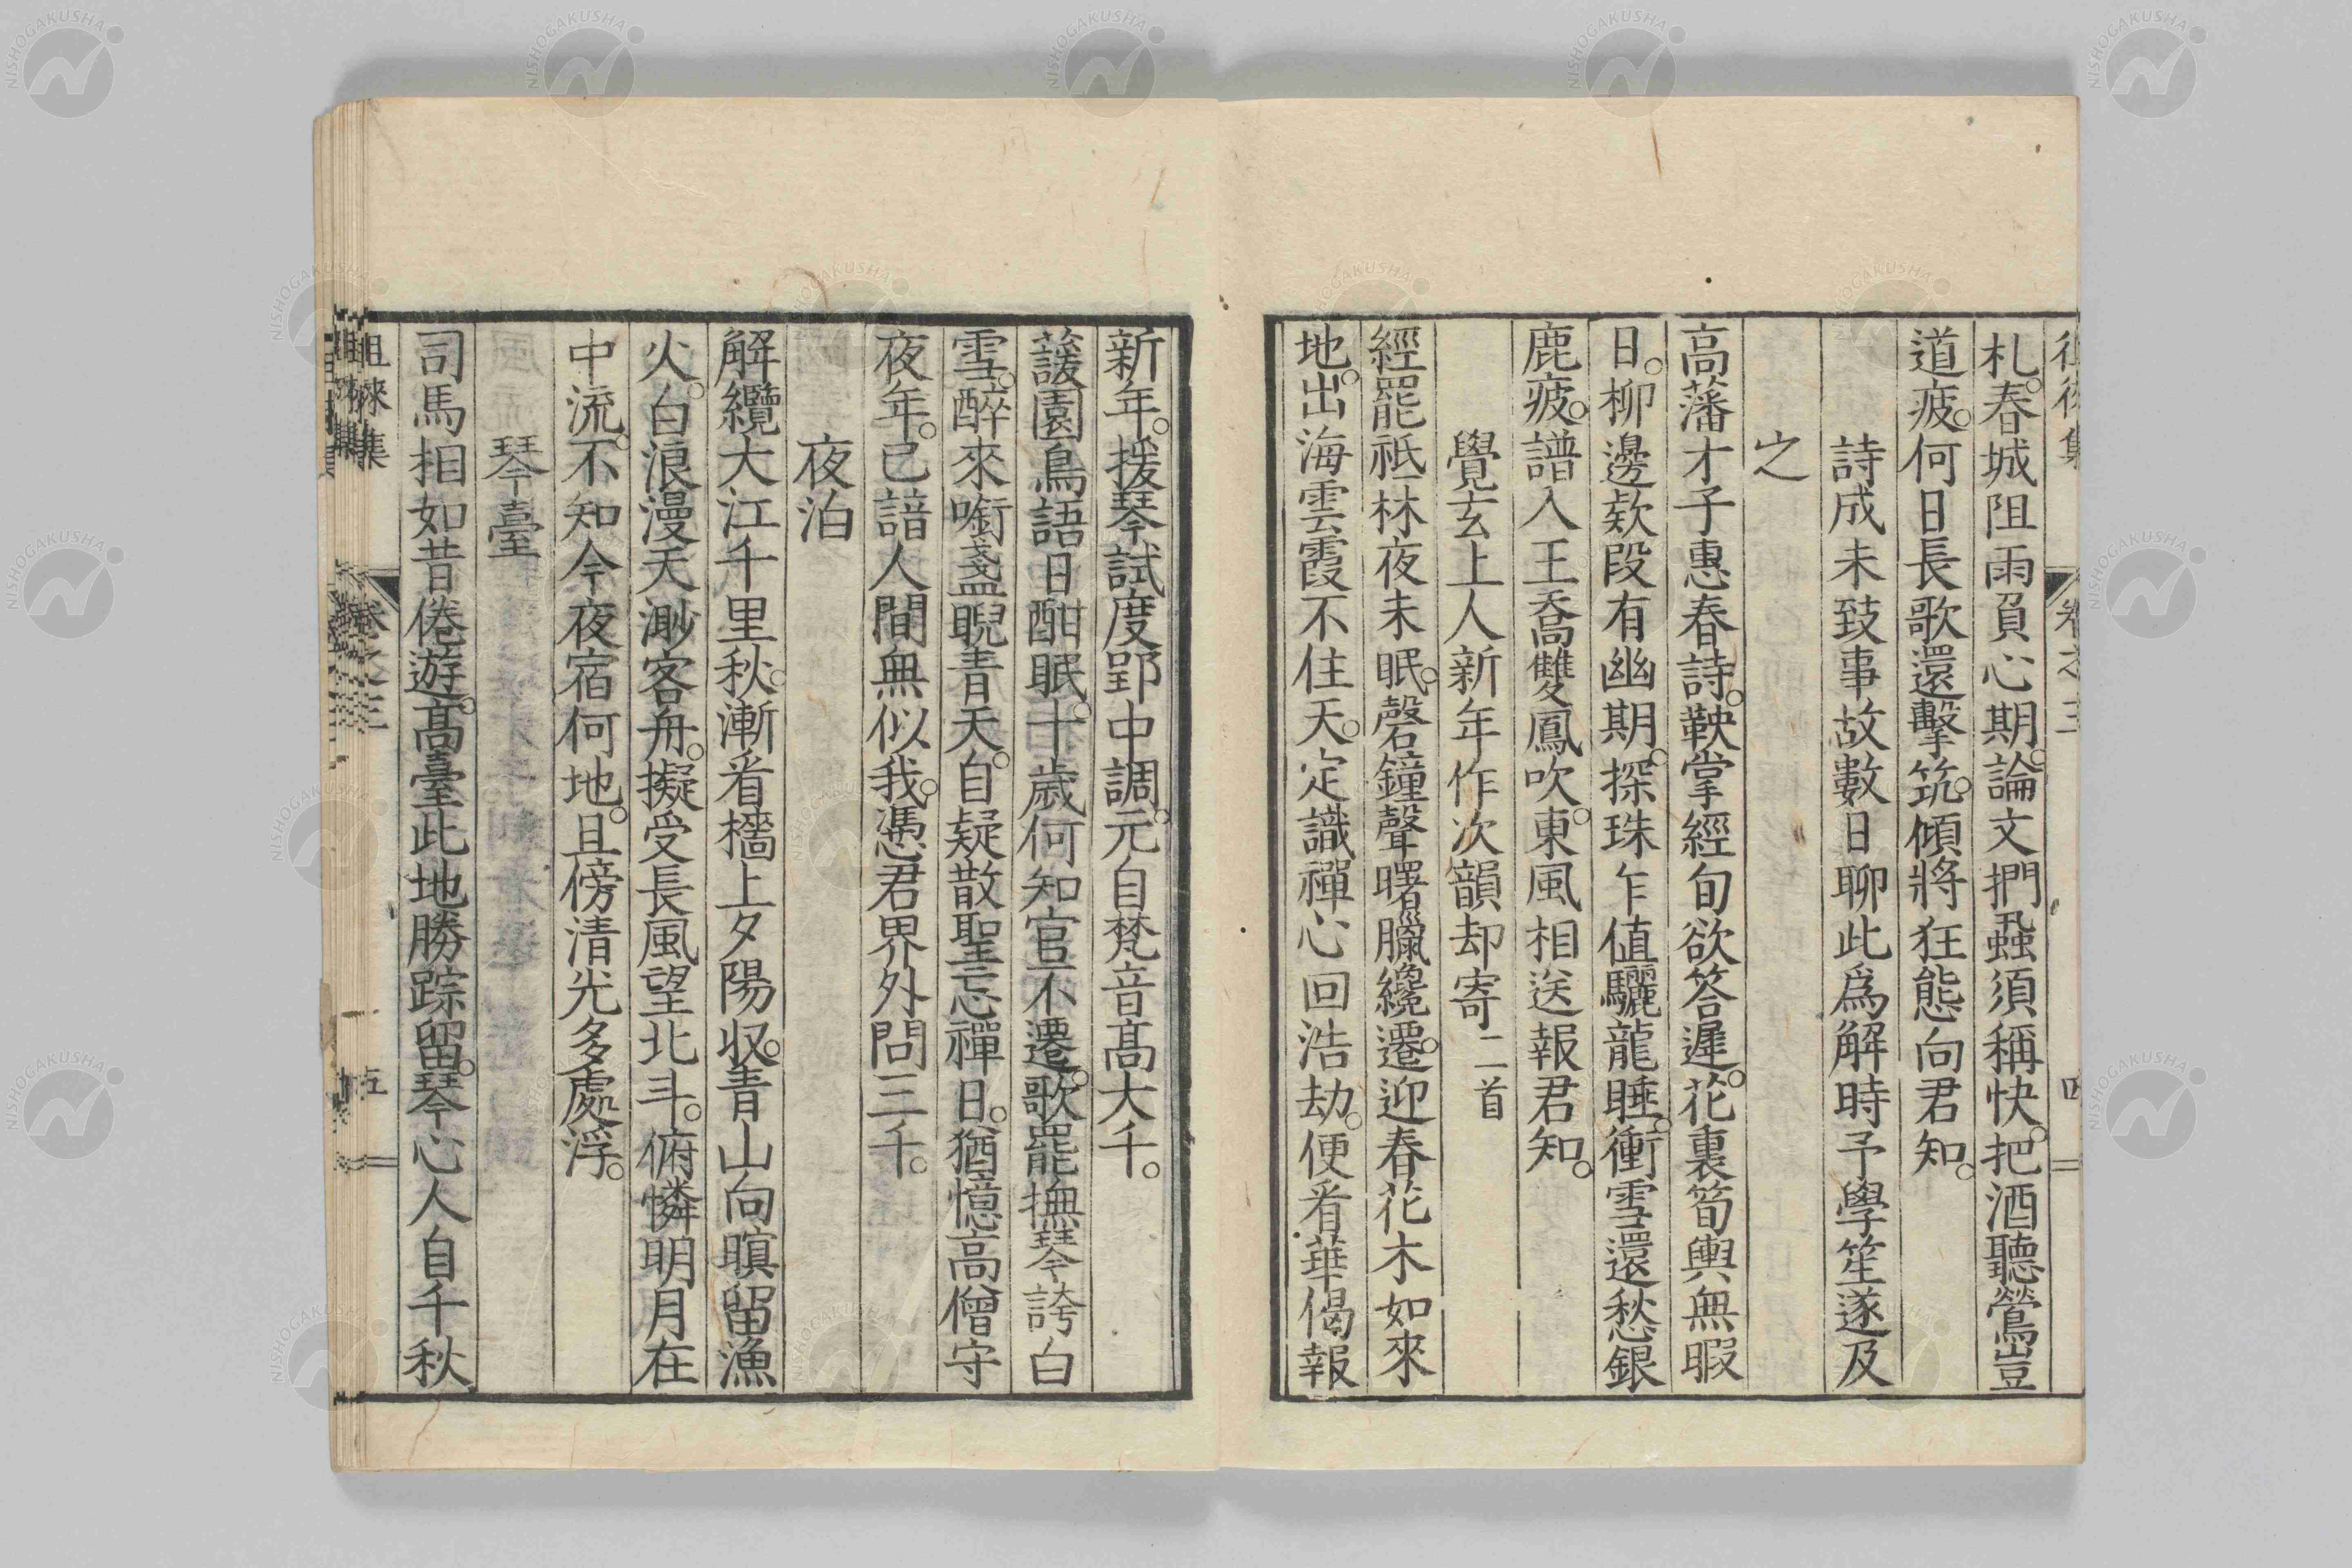 札。春城阻雨負心期。論文捫蝨須稱快。把酒聽鶯豈
道疲。何日長歌還擊筑。傾將狂態向君知。
詩成未致事故數日聊此爲解時予學笙遂及
之
高藩才子惠春詩。鞅掌經旬欲答遲。花裏筍輿無暇
日。柳邊欵段有幽期。探珠乍值驪龍睡。衝雪還愁銀
鹿疲。譜入王喬雙鳳吹。東風相送報君知。
覺玄上人新年作次韻却寄二首
經罷祇林夜未眠。磬鐘聲曙臘纔遷。迎春花木如來
地。出海雲霞不住天。定識禪心回浩劫。便看華偈報
新年。援琴試度郢中調。元自梵音高大千。
蘐園鳥語日酣眠。十歲何知官不遷。歌罷撫琴誇白
雪。醉來啣盞睨青天。自疑散聖忘禪日。猶憶高僧守
夜年。已諳人間無似我。憑君界外問三千。
夜泊
解纜大江千里秋。漸看檣上夕陽収。青山向暝留漁
火。白浪漫天渺客舟。擬受長風望北斗。俯憐明月在
中流。不知今夜宿何地。且傍清光多處浮。
琴臺
司馬相如昔倦遊。高臺此地勝踪留。琴心人自千秋
徂徠集
卷之三
五
NISHOGAKUSHA